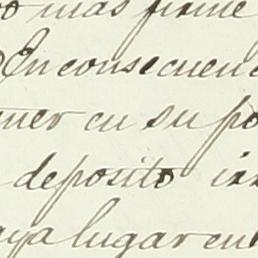 mas firme
En consecuen
ner en su po
deposito
aya lugar en